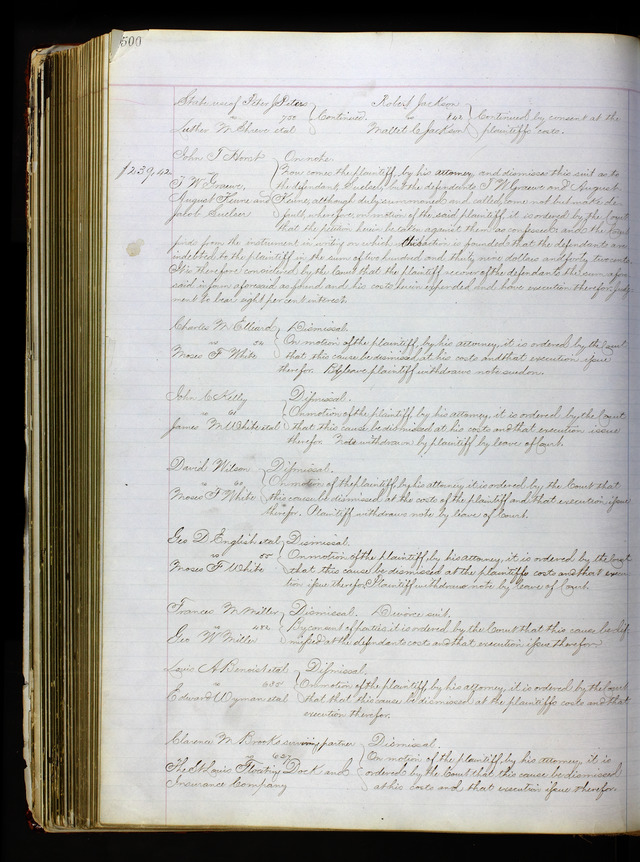 500
State use of Peter J Peters } Continued. Robert Jackson } Continued by consent at the
vs 700 vs 842 plaintiffs costs.
Luther M Shreve etal Mallet C Jackson
John T Horst } On note.
$239,42 Now comes the plaintiff by his attorney and dismisses this suit as to
T W Graeve, the defendant Suelser, but the defendants T W Graeve and August
August Feine and Feine, although duly summoned and called, come not but make de
Jacob fault, wherefore, on motion of the said plaintiff, it is ordered by the Court
that the petition herein be taken against them as confessed, and the Court
finds from the instrument in writing on which this action is founded that the defendants are
indebted to the plaintiff in the sum of two hundred and thirty nine dollars and forty two cents.
It is therefore considered by the Court that the plaintiff recover of the defendants the sum afore
said in form aforesaid as found and his costs herein expended and have execution therefor, judg
ment to bear eight per cent interest.
Charles M Elleard } Dismissal.
vs 54 On motion of the plaintiff, by his attorney, it is ordered by the Court
Moses F White that this cause be dismissed at his costs and that execution issue
therefor. By leave plaintiff withdraws note sued on.
John C Kelly } Dismissal.
vs 61 On motion of the plaintiff, by his attorney, it is ordered by the Court
James M White etal that this cause be dismissed at his costs and that execution issue
therefor. Note withdrawn by plaintiff by leave of Court.
David Wilson } Dismissal.
vs 60 On motion of the plaintiff, by his attorney it is ordered by the Court that
Moses F White this cause be dismissed at the costs of the plaintiff and that execution issue
therefor. Plaintiff withdraws note by leave of Court.
Geo D English etal } Dismissal.
vs 55 On motion of the plaintiff by his attorney, it is ordered by the Court
Moses F White that this cause be dismissed at the plaintiffs costs and that execu
tion issue therefor. Plaintiff withdraws note by leave of Court.
Frances M Miller } Dismissal. Divorce suit.
vs 482 By consent of parties it is ordered by the Court that this cause be dis
Geo W Miller missed at the defendants costs and that execution issue therefor.
Louis A Benoist etal } Dismissal.
vs 685 On motion of the plaintiff, by his attorney, it is ordered by the Court
Edward Wyman etal that that this cause be dismissed at the plaintiffs costs and that
execution therefor.
Clarence M Brooks surviving partner } Dismissal.
627 On motion of the plaintiff, by his attorney, it is
The St Louis Floating Dock and ordered by the Court that this cause be dismissed
Insurance Company at his costs and that execution issue therefor.